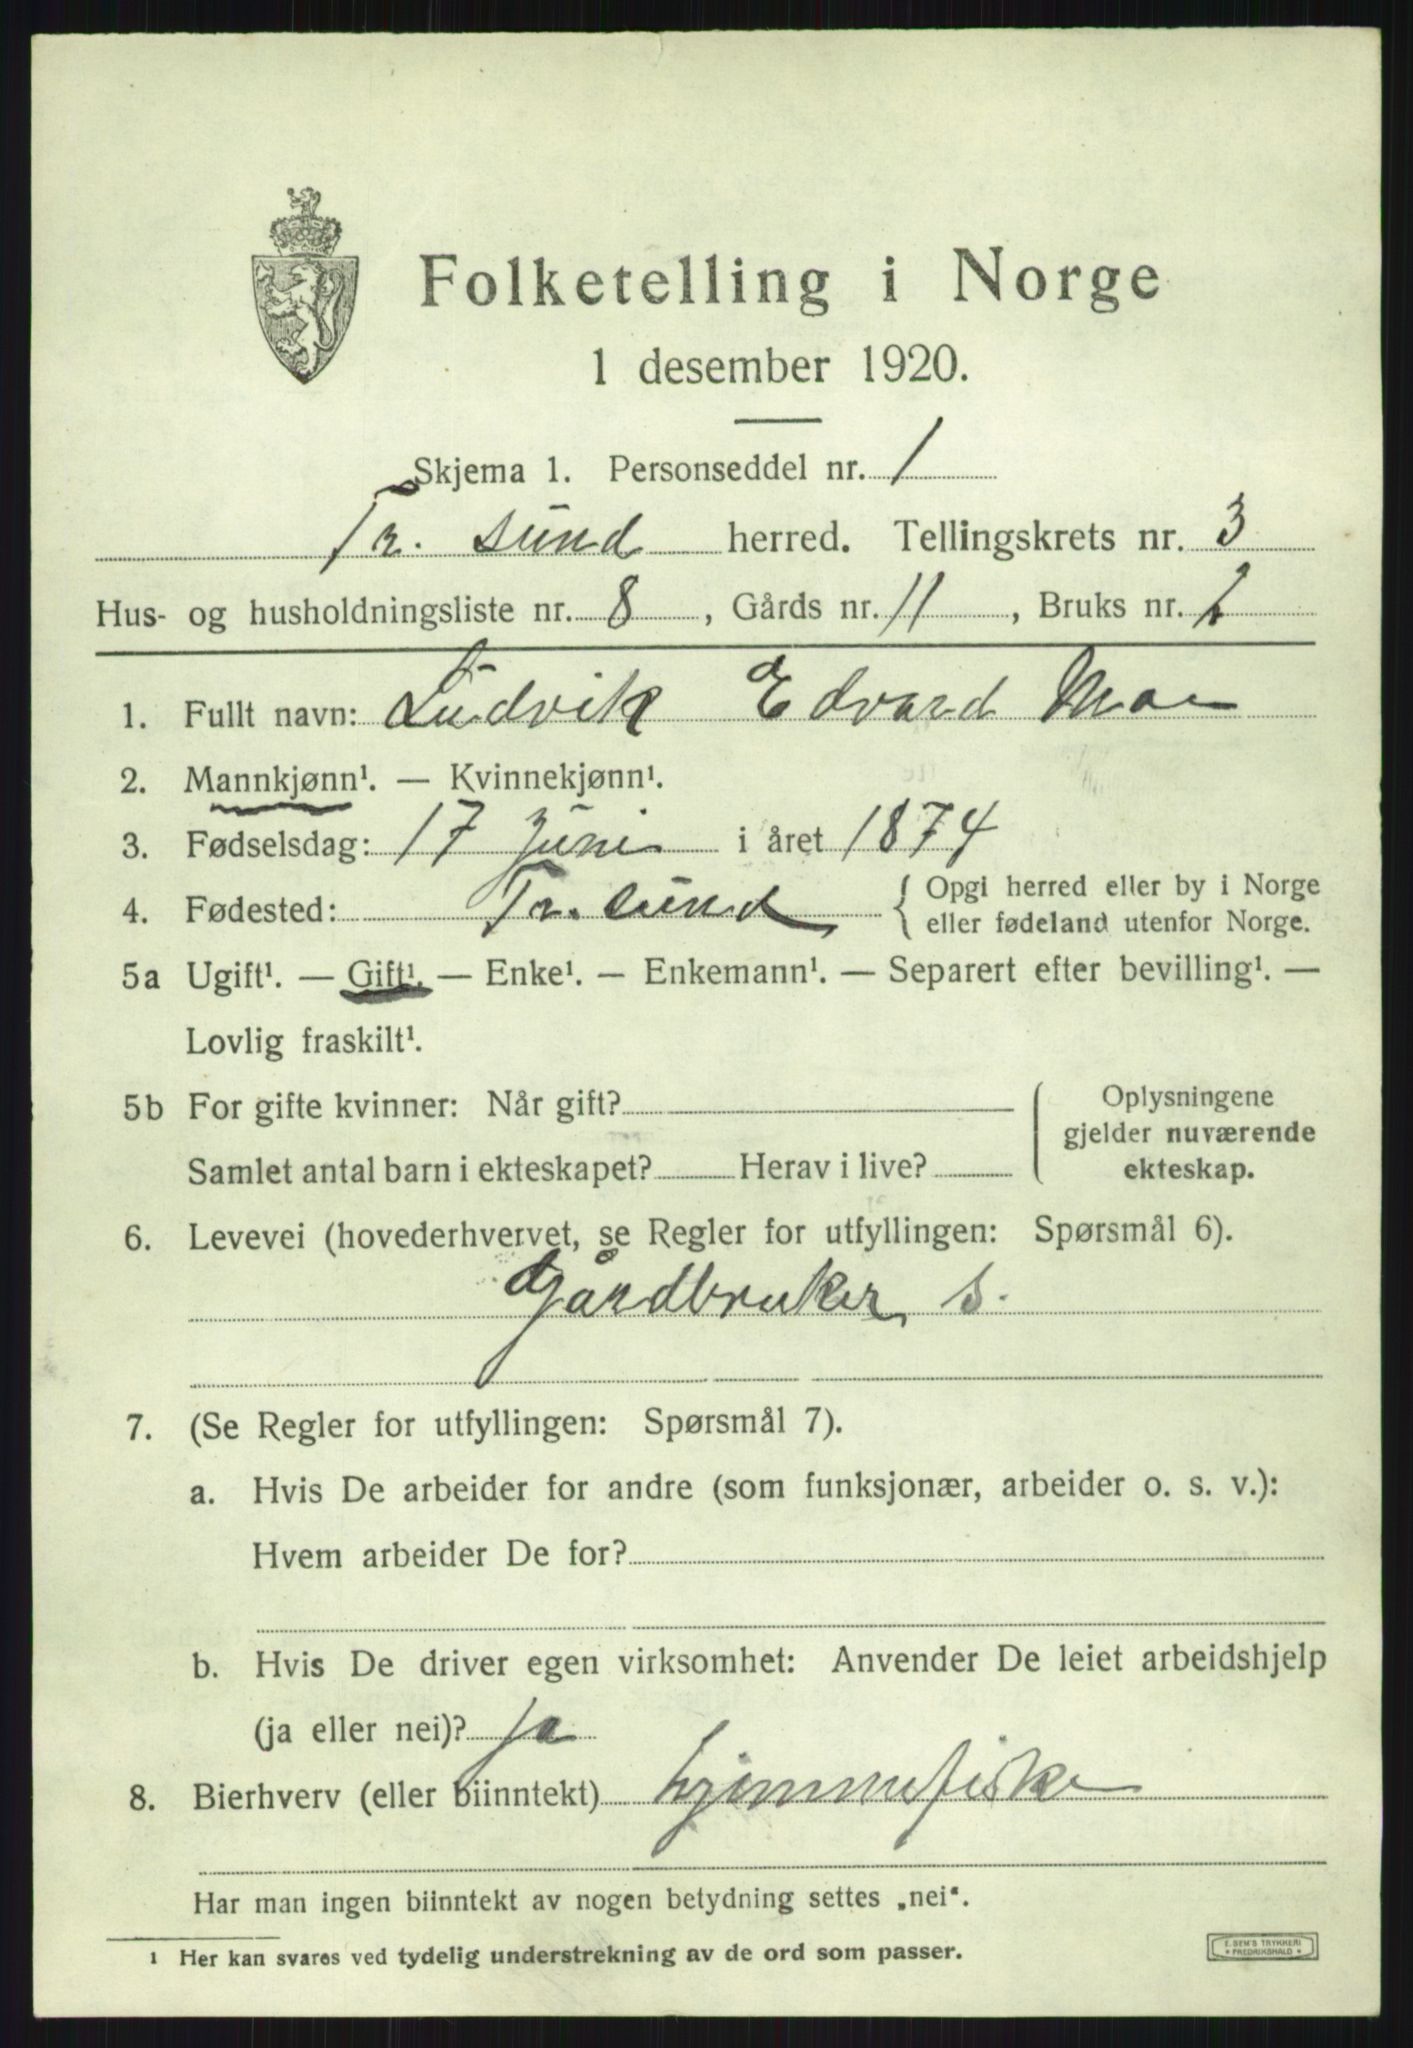 Folketelling i Norge
1 desember 1920.
Skjema 1. Personseddel nr. 1
Tr. sund herred. Tellingskrets nr. 3
Hus- og husholdningsliste nr. 8, Gårds nr. 11, Bruks nr. 1
1. Fullt navn: Ludvik Edvard Moe
2. Mannkjønn¹. — Kvinnekjønn¹.
3. Fødselsdag: 17 Juni i året 1874
4. Fødested: Tr. sund { Opgi herred eller by i Norge
eller fødeland utenfor Norge.
5a Ugift¹. — Gift¹. — Enke¹. — Enkemann¹. — Separert efter bevilling¹. —
Lovlig fraskilt¹.
5b For gifte kvinner: Når gift?
Samlet antal barn i ekteskapet? Herav i live?
Oplysningene
gjelder nuværende
ekteskap.
6. Levevei (hovederhvervet, se Regler for utfyllingen: Spørsmål 6).
Gårdbruker s.
7. (Se Regler for utfyllingen: Spørsmål 7).
a. Hvis De arbeider for andre (som funksjonær, arbeider o. s. v.):
Hvem arbeider De for?
b. Hvis De driver egen virksomhet: Anvender De leiet arbeidshjelp
(ja eller nei)? ja
8. Bierhverv (eller biinntekt) hjemmefiske
Har man ingen biinntekt av nogen betydning settes „nei“.
¹ Her kan svares ved tydelig understrekning av de ord som passer.
E. SEM'S TRYKKERI
* FREDRIKSHALD *